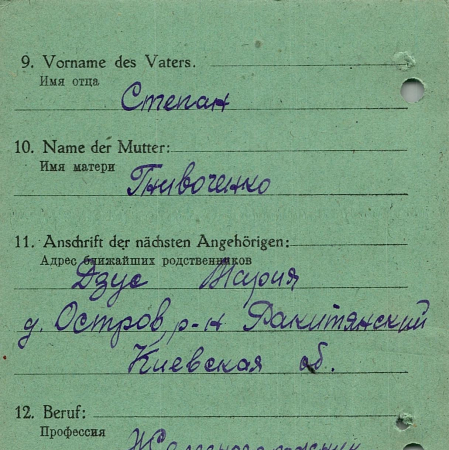 9. Vorname des Vaters.
Имя отца
Степан
10. Name der Mutter:
Имя матери
Пивоченко
11. Anschrift der nächsten Angehörigen:
Адрес ближайших родственников
Дзус Мария
д. Остров, р-н Ракитянский
Киевская об.
12. Beruf:
Профессия